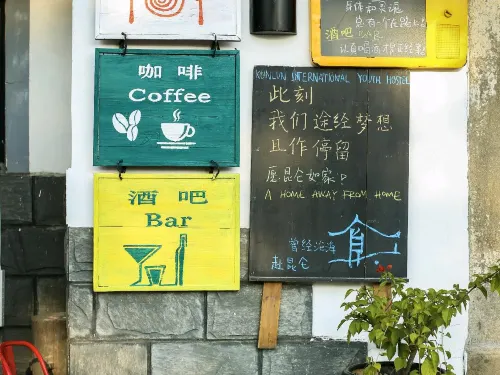 咖啡
Coffee
酒吧
Bar
KUNLUN INTERNATIONAL YOUTH HOSTEL
此刻
我们途经梦想
且作停留
愿昆仑如家
A HOME AWAY FROM HOME
曾经沧海
赴昆仑
总有一个在路上
酒吧 BAR